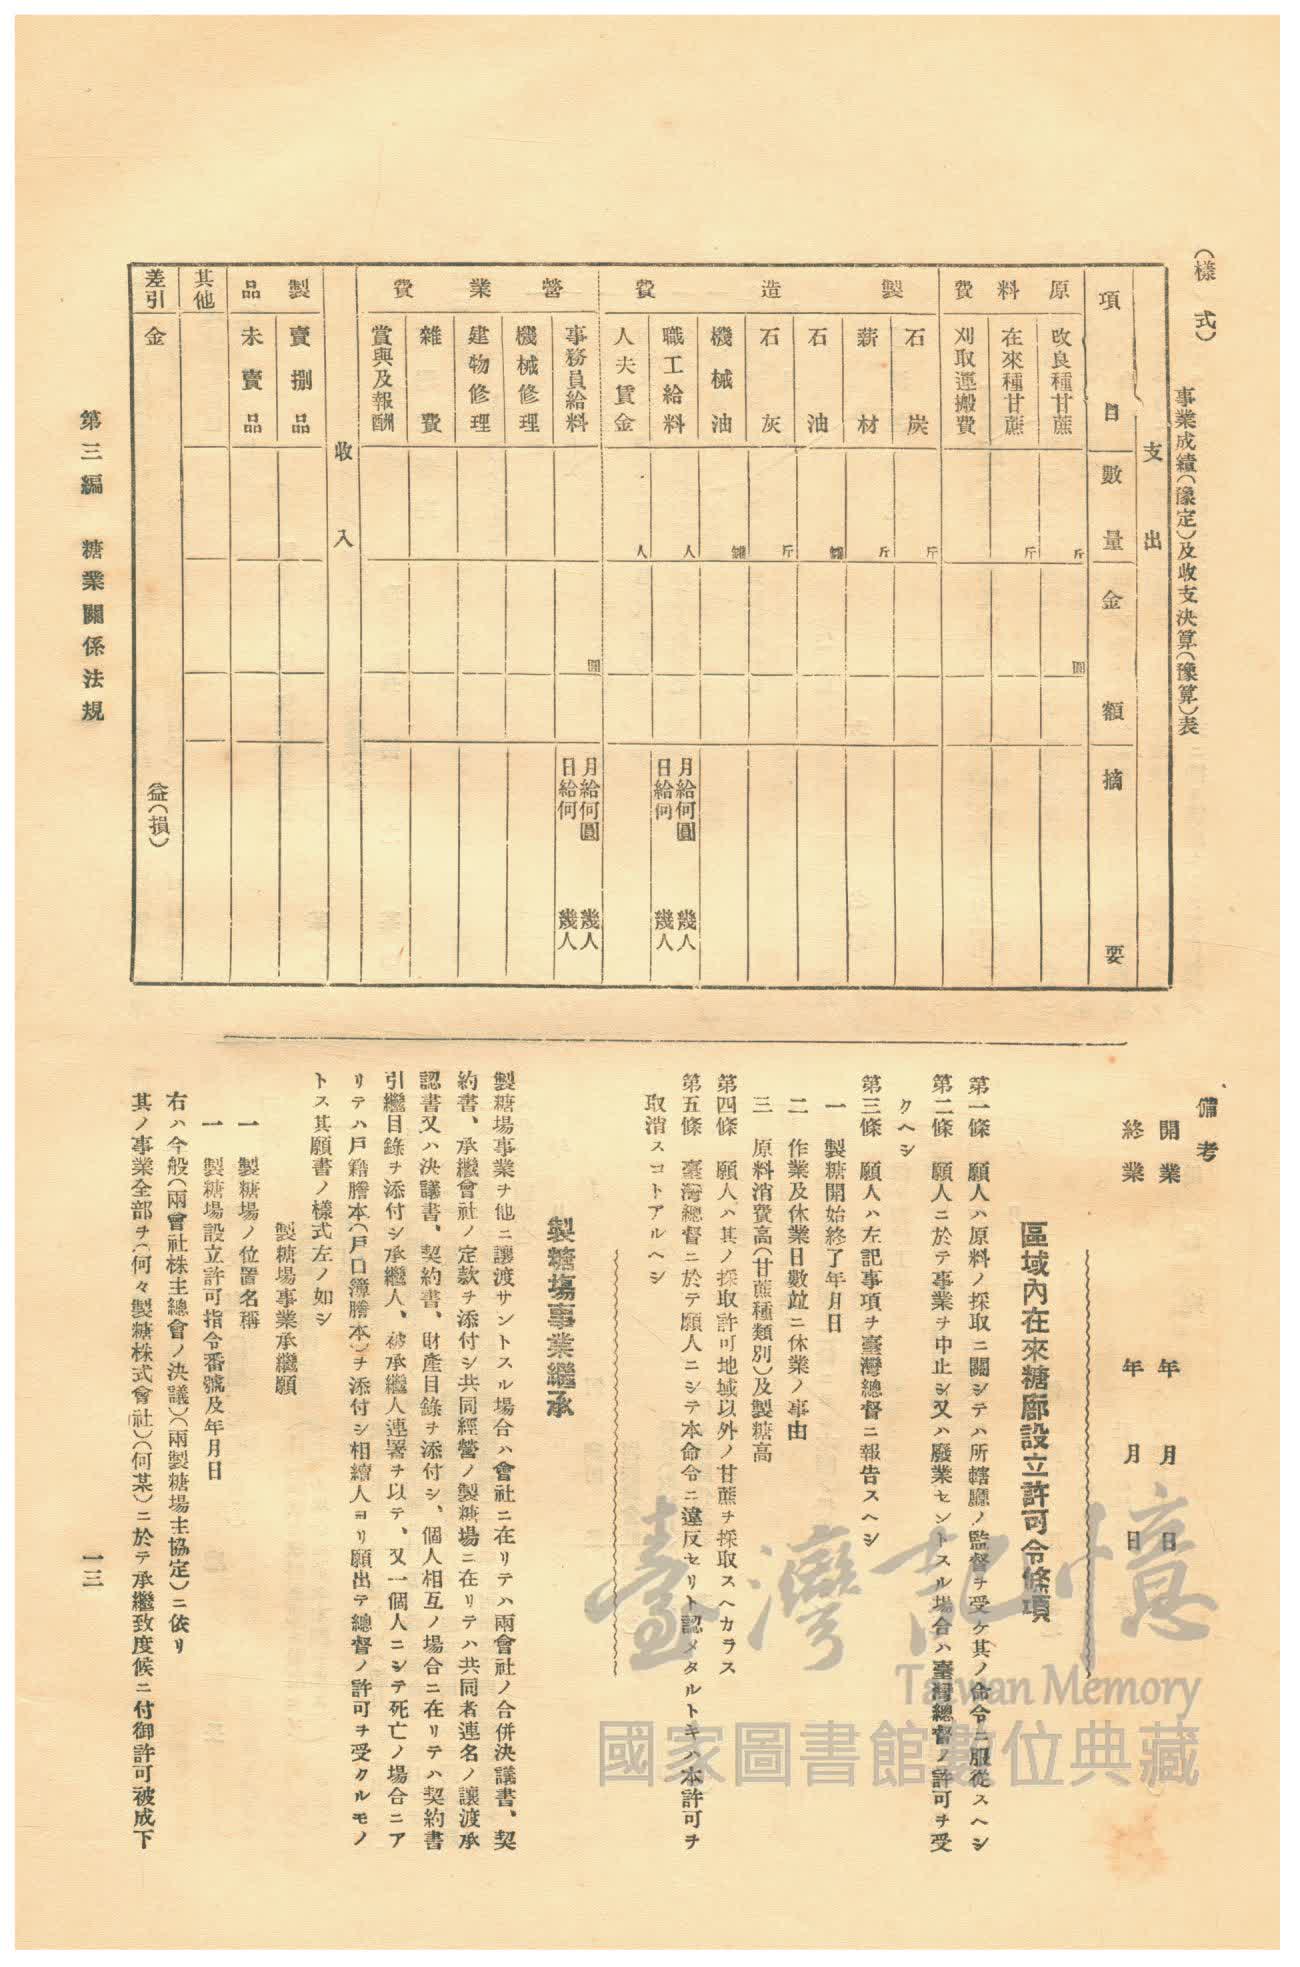 （樣　式）
事業成績（豫定）及收支決算（豫算）表
支　出
項　目　數　量　金　額　摘　要
原料費
改良種甘蔗　斤　圓
在來種甘蔗　斤
刈取運搬費
製造費
石炭　斤
薪材　斤
石油　罐
石灰　斤
機械油　罐
職工給料　人　月給何圓　幾人
日給何　幾人
人夫賃金　人
營業費
事務員給料　圓　月給何圓　幾人
日給何　幾人
機械修理
建物修理
雜費
賞與及報酬
收　入
製品
賣捌品
未賣品
其他
差引　金　益（損）
備考
開業　年　月　日
終業　年　月　日
區域內在來糖廍設立許可令條項
第一條　願人ハ原料ノ採取ニ關シテハ所轄廳ノ監督ヲ受ケ其ノ命令ニ服從スヘシ
第二條　願人ニ於テ事業ヲ中止シ又ハ廢業セントスル場合ハ臺灣總督ノ許可ヲ受
クヘシ
第三條　願人ハ左記事項ヲ臺灣總督ニ報告スヘシ
一　製糖開始終了年月日
二　作業及休業日數竝ニ休業ノ事由
三　原料消費高（甘蔗種類別）及製糖高
第四條　願人ハ其ノ採取許可地域以外ノ甘蔗ヲ採取スヘカラス
第五條　臺灣總督ニ於テ願人ニシテ本命令ニ違反セリト認メタルトキハ本許可ヲ
取消スコトアルヘシ
製糖場事業繼承
製糖場事業ヲ他ニ讓渡サントスル場合ハ會社ニ在リテハ兩會社ノ合併決議書、契
約書、承繼會社ノ定款ヲ添付シ共同經營ノ製糖場ニ在リテハ共同者連名ノ讓渡承
認書又ハ決議書、契約書、財產目錄ヲ添付シ、個人相互ノ場合ニ在リテハ契約書
引繼目錄ヲ添付シ承繼人、被承繼人連署ヲ以テ、又一個人ニシテ死亡ノ場合ニア
リテハ戶籍謄本（戶口簿謄本）ヲ添付シ相續人ヨリ願出テ總督ノ許可ヲ受クルモノ
トス其願書ノ樣式左ノ如シ
製糖場事業承繼願
一　製糖場ノ位置名稱
一　製糖場設立許可指令番號及年月日
右ハ今般（兩會社株主總會ノ決議）（兩製糖場主協定）ニ依リ
其ノ事業全部ヲ（何々製糖株式會社）（何某）ニ於テ承繼致度候ニ付御許可被成下
第三編　糖業關係法規
一三
臺灣記憶
Taiwan Memory
國家圖書館數位典藏